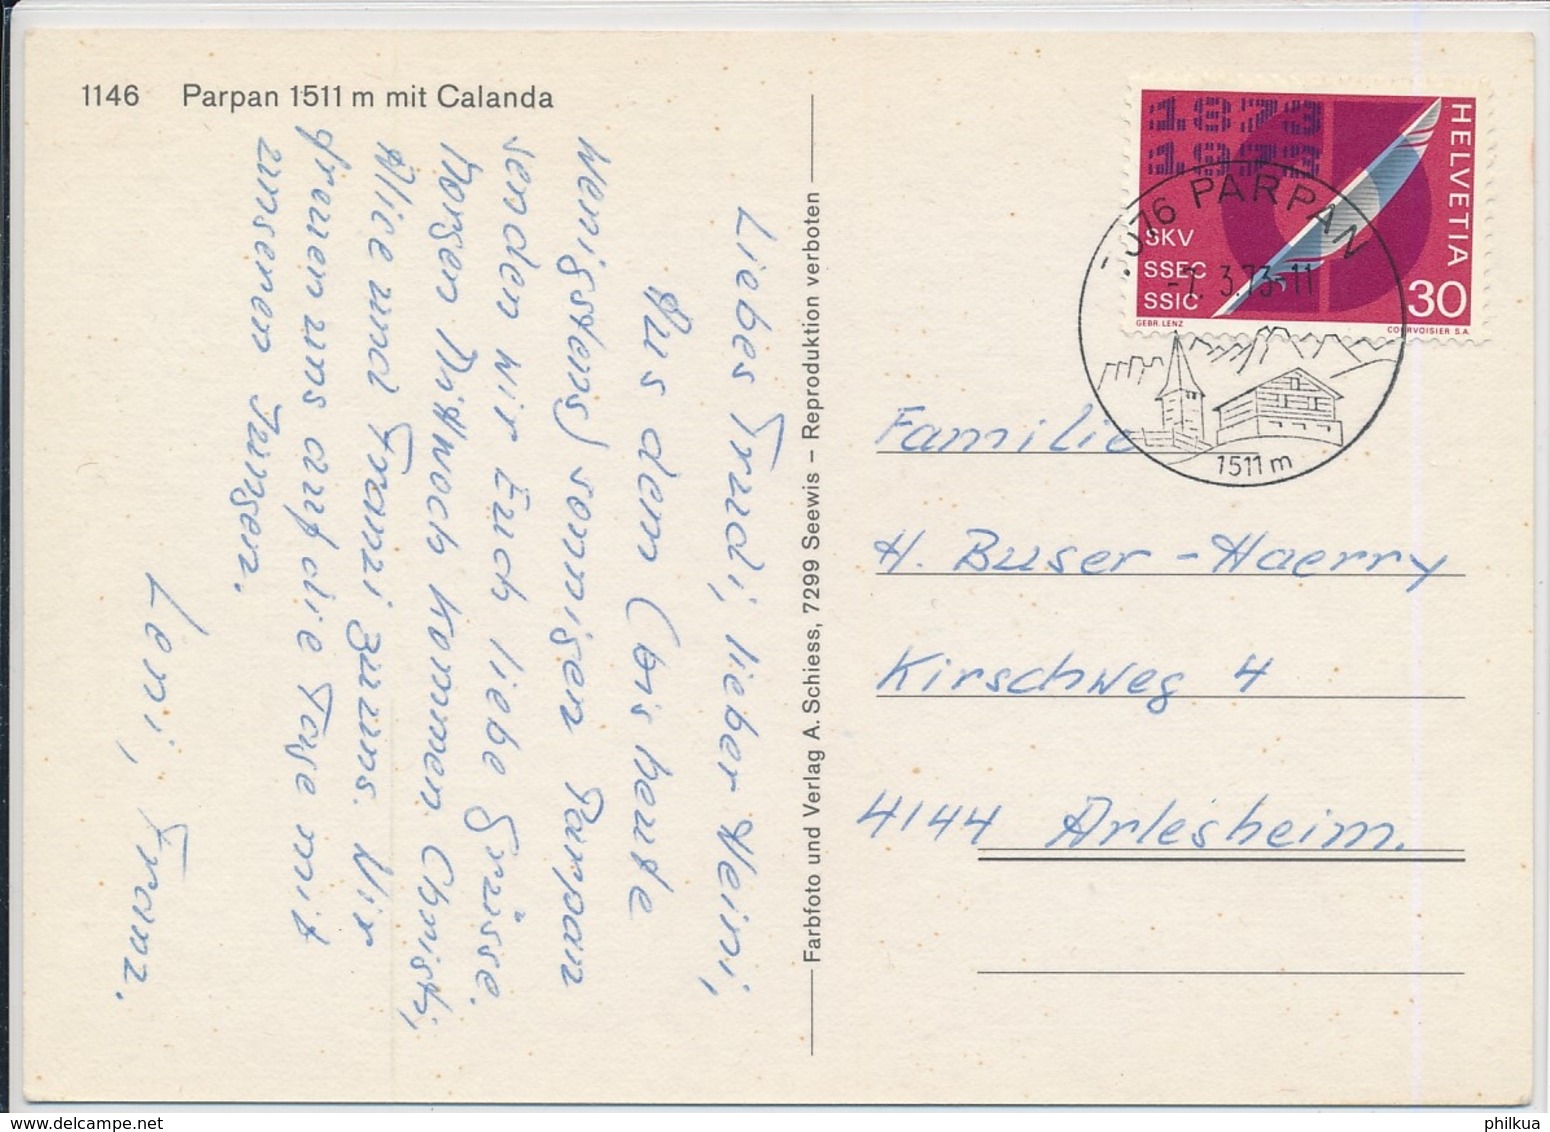 1146 Parpan 1511 m mit Calanda
Liebes Trudi, lieber Heini,
Aus dem (bis heute
wenigstens) sonnigen Parpan
senden wir Euch liebe Grüsse.
Morgen Mittwoch kommen Christi,
Alice und Franzi zu uns. Wir
freuen uns auf die Tage mit
unseren Jungen.
Leni, Franz.
Farbfoto und Verlag A. Schiess, 7299 Seewis – Reproduktion verboten
1873
1973
HELVETIA
SKV
SSEC
SSIC
30
GEBR. LENZ
COURVOISIER S.A.
7076 PARPAN
-7. 3.73-11
1511 m
Familie
H. Buser-Haerry
Kirschweg 4
4144 Arlesheim.
www.delcampe.net
philkua